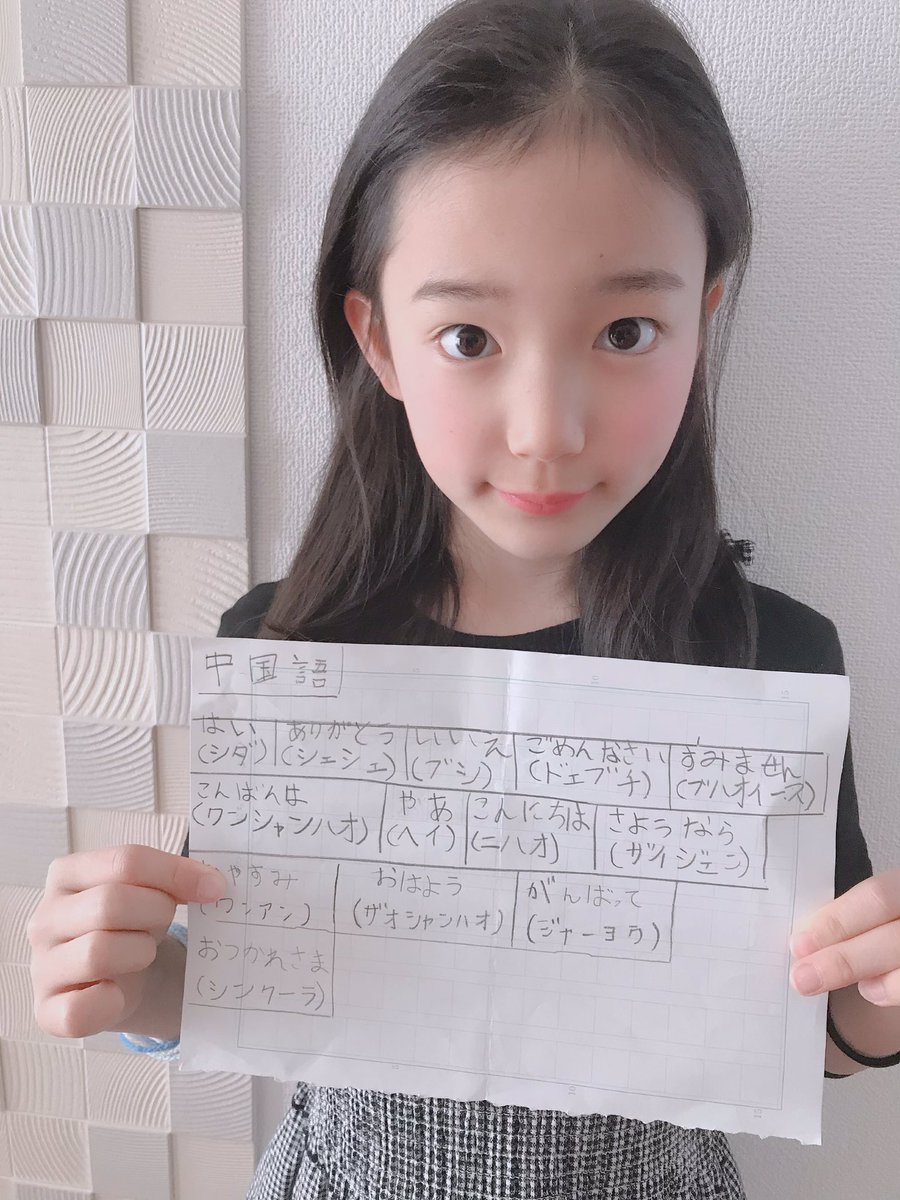 中国語
はい ありがとう いいえ ごめんなさい すみません
(シダ) (シェシェ) (ブシ) (ドエブチ) (ブハオイース)
こんばんは やあ こんにちは さようなら
(ワンシャンハオ) (ヘイ) (ニハオ) (ザイジェン)
やすみ おはよう がんばって
(ワンアン) (ザオシャンハオ) (ジャーヨウ)
おつかれさま
(シンクーラ)